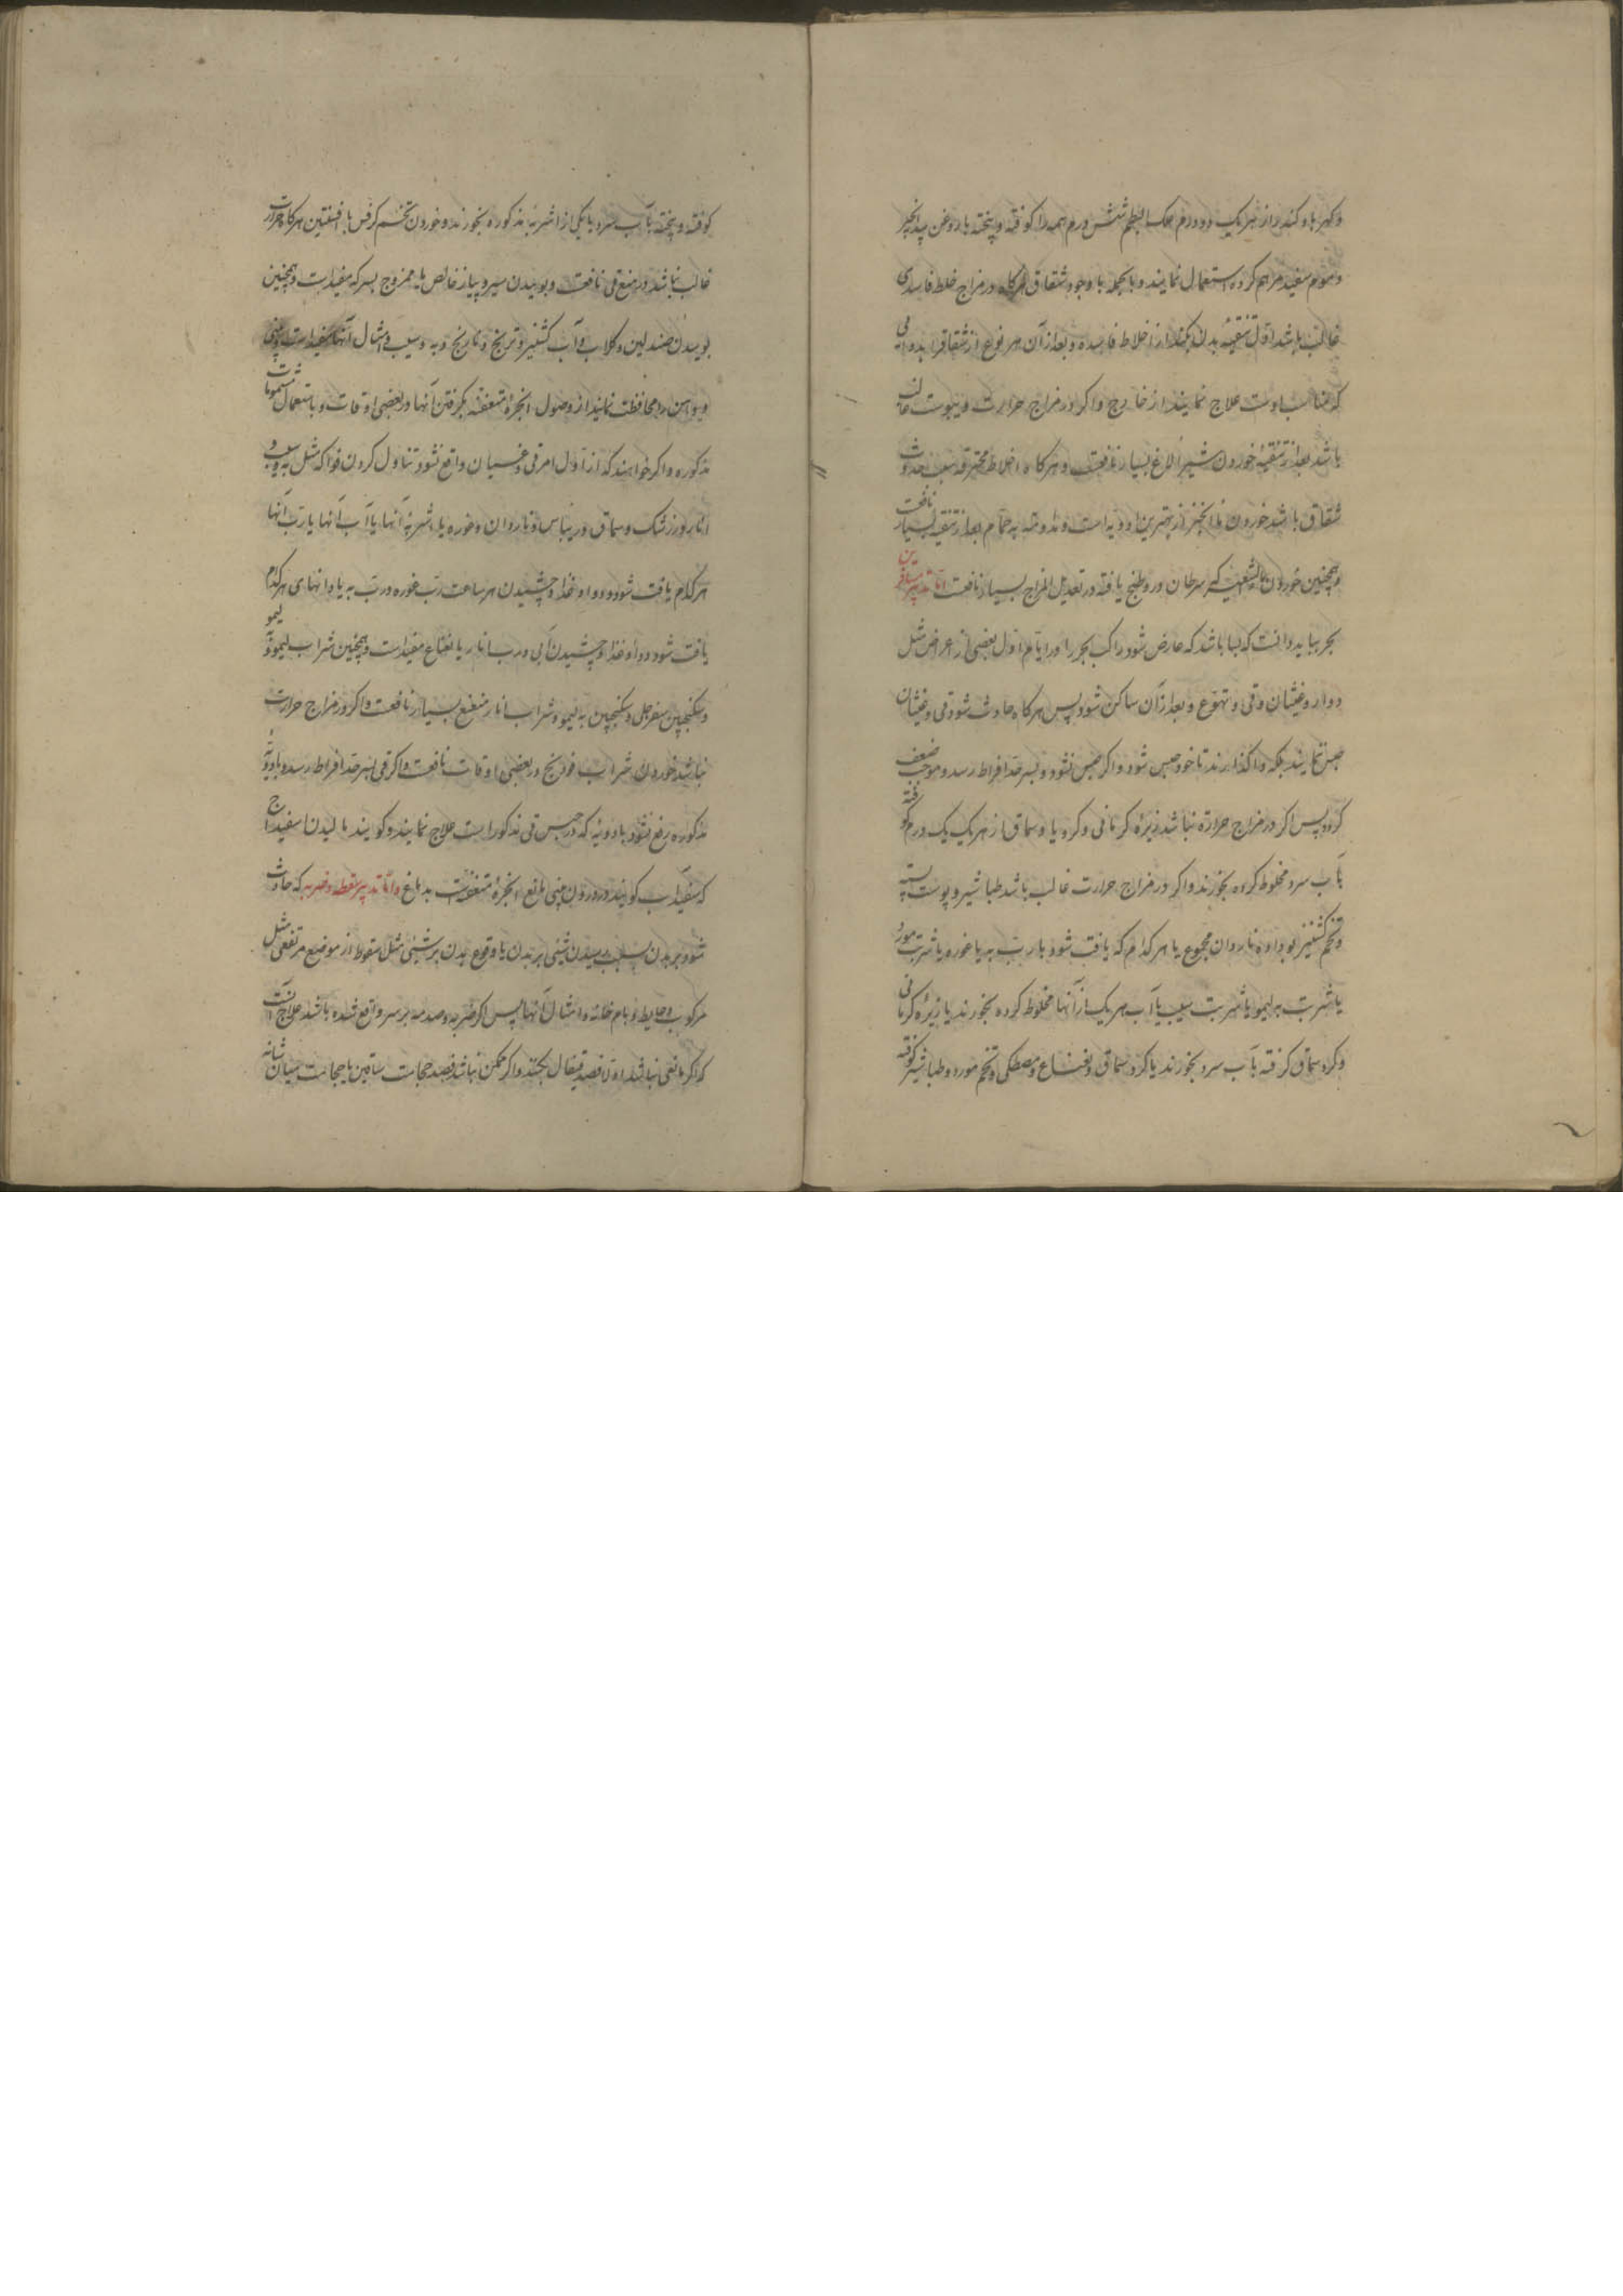 و کهربا و کندر از هر یک دو درم علک البطم شش درم همه را کوفته و پخته با روغن بید انجیر
و موم سفید مرهم کرده استعمال نمایند و بالجمله با وجود شقاق هرکاه در مزاج خلط فاسدی
غالب باشد اول تنقیهٔ بدن بکنند از اخلاط فاسده و بعد از آن هر نوع از شقاقرا بدوائی
که مناسب اوست علاج نمایند از خارج و اکر در مزاج حرارت و یبوست غالب
باشد بعد از تنقیه خوردن شیر الاغ بسیار نافعست و هرکاه اخلاط محترقه سبب حدوث
شقاق باشد خوردن ماء الجبن از بهترین ادویه است و مداومت به حمام بعد از تنقیه بسیار نافعست
و همچنین خوردن ماء الشعیر که سرطان در و طبخ یافته در تعدیل المزاج بسیار نافعست اما تدبیر مسافرین
بحر بباید دانست که بسا باشد که عارض شود راکب بحر را در ایام اول بعضی از اعراض مثل
دوار و غثیان و قی و تهوع و بعد از آن ساکن شود پس هرکاه حادث شود قی و غثیان
حبس ننمایند بلکه واکذارند تا خود حبس شود و اکر حبس نشود و بسرحد افراط رسد و موجب ضعف
کردد پس اکر در مزاج حرارة نباشد زیرهٔ کرمانی و کرویا و سماق از هر یک یک درم کوفته
بآب سرد مخلوط کرده بخورند و اکر در مزاج حرارت غالب باشد طباشیر و پوست پسته
و تخم کشنیز بو داده ناردان مجموع یا هر کدام که یافت شود با رب به یا غوره یا شربت مورد
یا شربت به لیمو یا شربت سیب یا آب هر یک از آنها مخلوط کرده بخورند یا زیرهٔ کرمانی
و کرد سماق کرفته بآب سرد بخورند یا کرد سماق و نعناع و مصطکی و تخم مورد و طباشیر کوفته
کوفته و پخته بآب سرد یا یکی از اشربهٔ مذکوره بخورند و خوردن تخم کرفس با افسنتین هرکاه حرارت
غالب نباشد در منع قی نافعست و بوییدن سیر و پیاز خالص یا ممزوج بسرکه مفیدست و همچنین
بوییدن صندلین و کلاب و آب کشنیز و ترنج و نارنج و به و سیب و امثال آنها مفیدست و بینی
و دهن را محافظت نمایند از وصول ابخرهٔ متعفنه بکرفتن آنها در بعضی اوقات و باستعمال مشمومات
مذکوره و اکر خواهند که از اول امر قی و غثیان واقع نشود تناول کردن فواکه مثل به و سیب و
انار و زرشک و سماق و ریباس و ناردان و غوره یا اشربهٔ آنها یا آب آنها یا رب آنها
هر کدام یافت شود و دوا و غذا و چشیدن هر ساعت رب غوره و رب به یا دانهای هر کدام
یافت شود دوا و غذا و چشیدن آبی و رب انار یا نعناع مفیدست و همچنین شراب لیمو و آب لیمو
و سکنجبین سفرجلی و سکنجبین به لیمو و شراب انار منعنع بسیار نافعست و اکر در مزاج حرارت
نباشد خوردن شراب فودنج در بعضی اوقات نافعست و اکر قی بسرحد افراط رسد و بادویهٔ
مذکوره رفع نشود بادویهٔ که در حبس قی مذکور است علاج نمایند و کویند مالیدن اسفیداج
که سفیداب کویند در درون بینی مانع ابخرهٔ متعفنست بدماغ و اما تدبیر سقطه و ضربه که حادث
شود بر بدن بسبب رسیدن شیئی بر بدن یا وقوع بدن بر شیئی مثل سقوط از موضع مرتفعی مثل
مرکوب و حایط و بام خانه و امثال آنها پس اکر ضربه و صدمه بر سر واقع شده باشد علاج آنست
که اکر مانعی نباشد اولا فصد قیفال بکنند و اکر ممکن نباشد فصد حجامت ساقین یا حجامت میان شانه